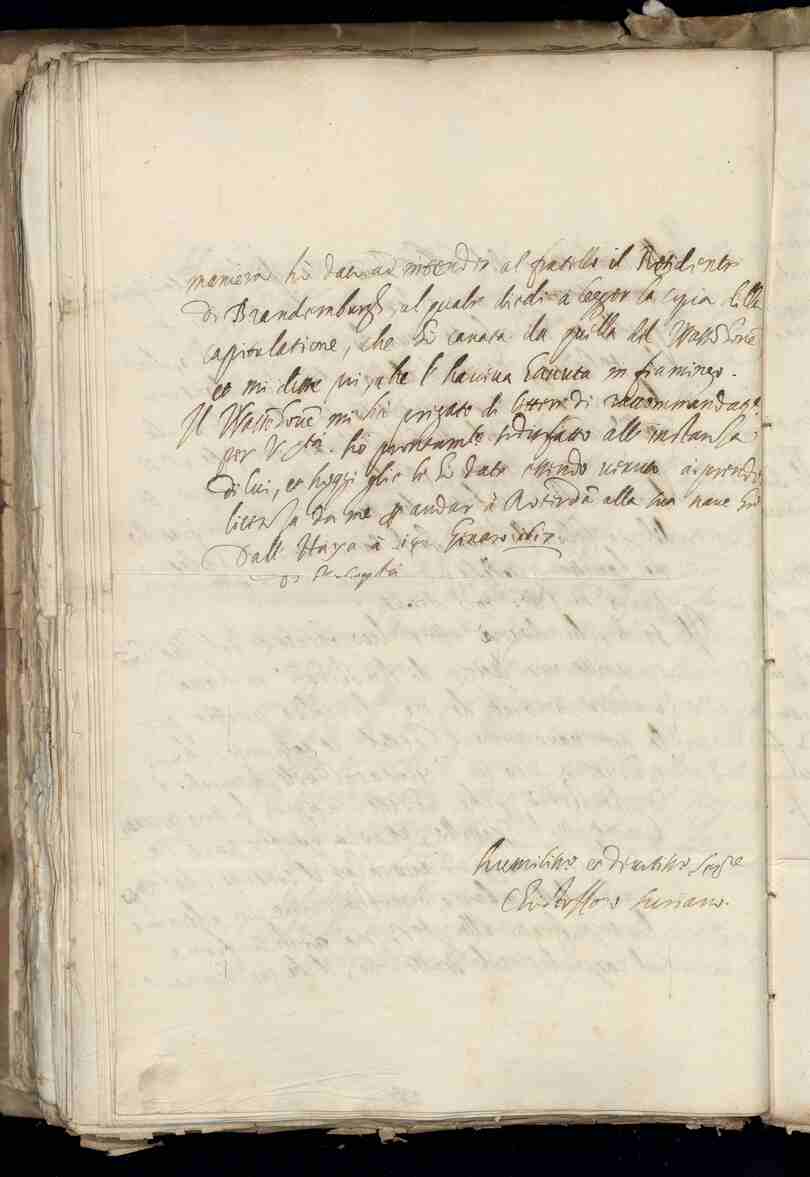 maniera hò dato ad intender al fratello il Residente
di Brandemburgh, al quale diedi à legger la copia della
capitulatione, che hò cavata da quella del Wassenhoven
et mi disse poi che l'haveva havuta in fiamingo.
Il Wassenhoven mi hà pregato di lettere di raccommandat.ne
per V. Ser.tà. hò prontamente sodisfatto all'instanza
di lui, et hoggi glie le hò date essendo venuto à prender
licenza da me p andar à Roterdã alla sua nave
Dall'Haya à Genaro 1617
Di V.ra Ser.tà
humiliss.o et devotiss.o ser.re
Christofforo Suriano.